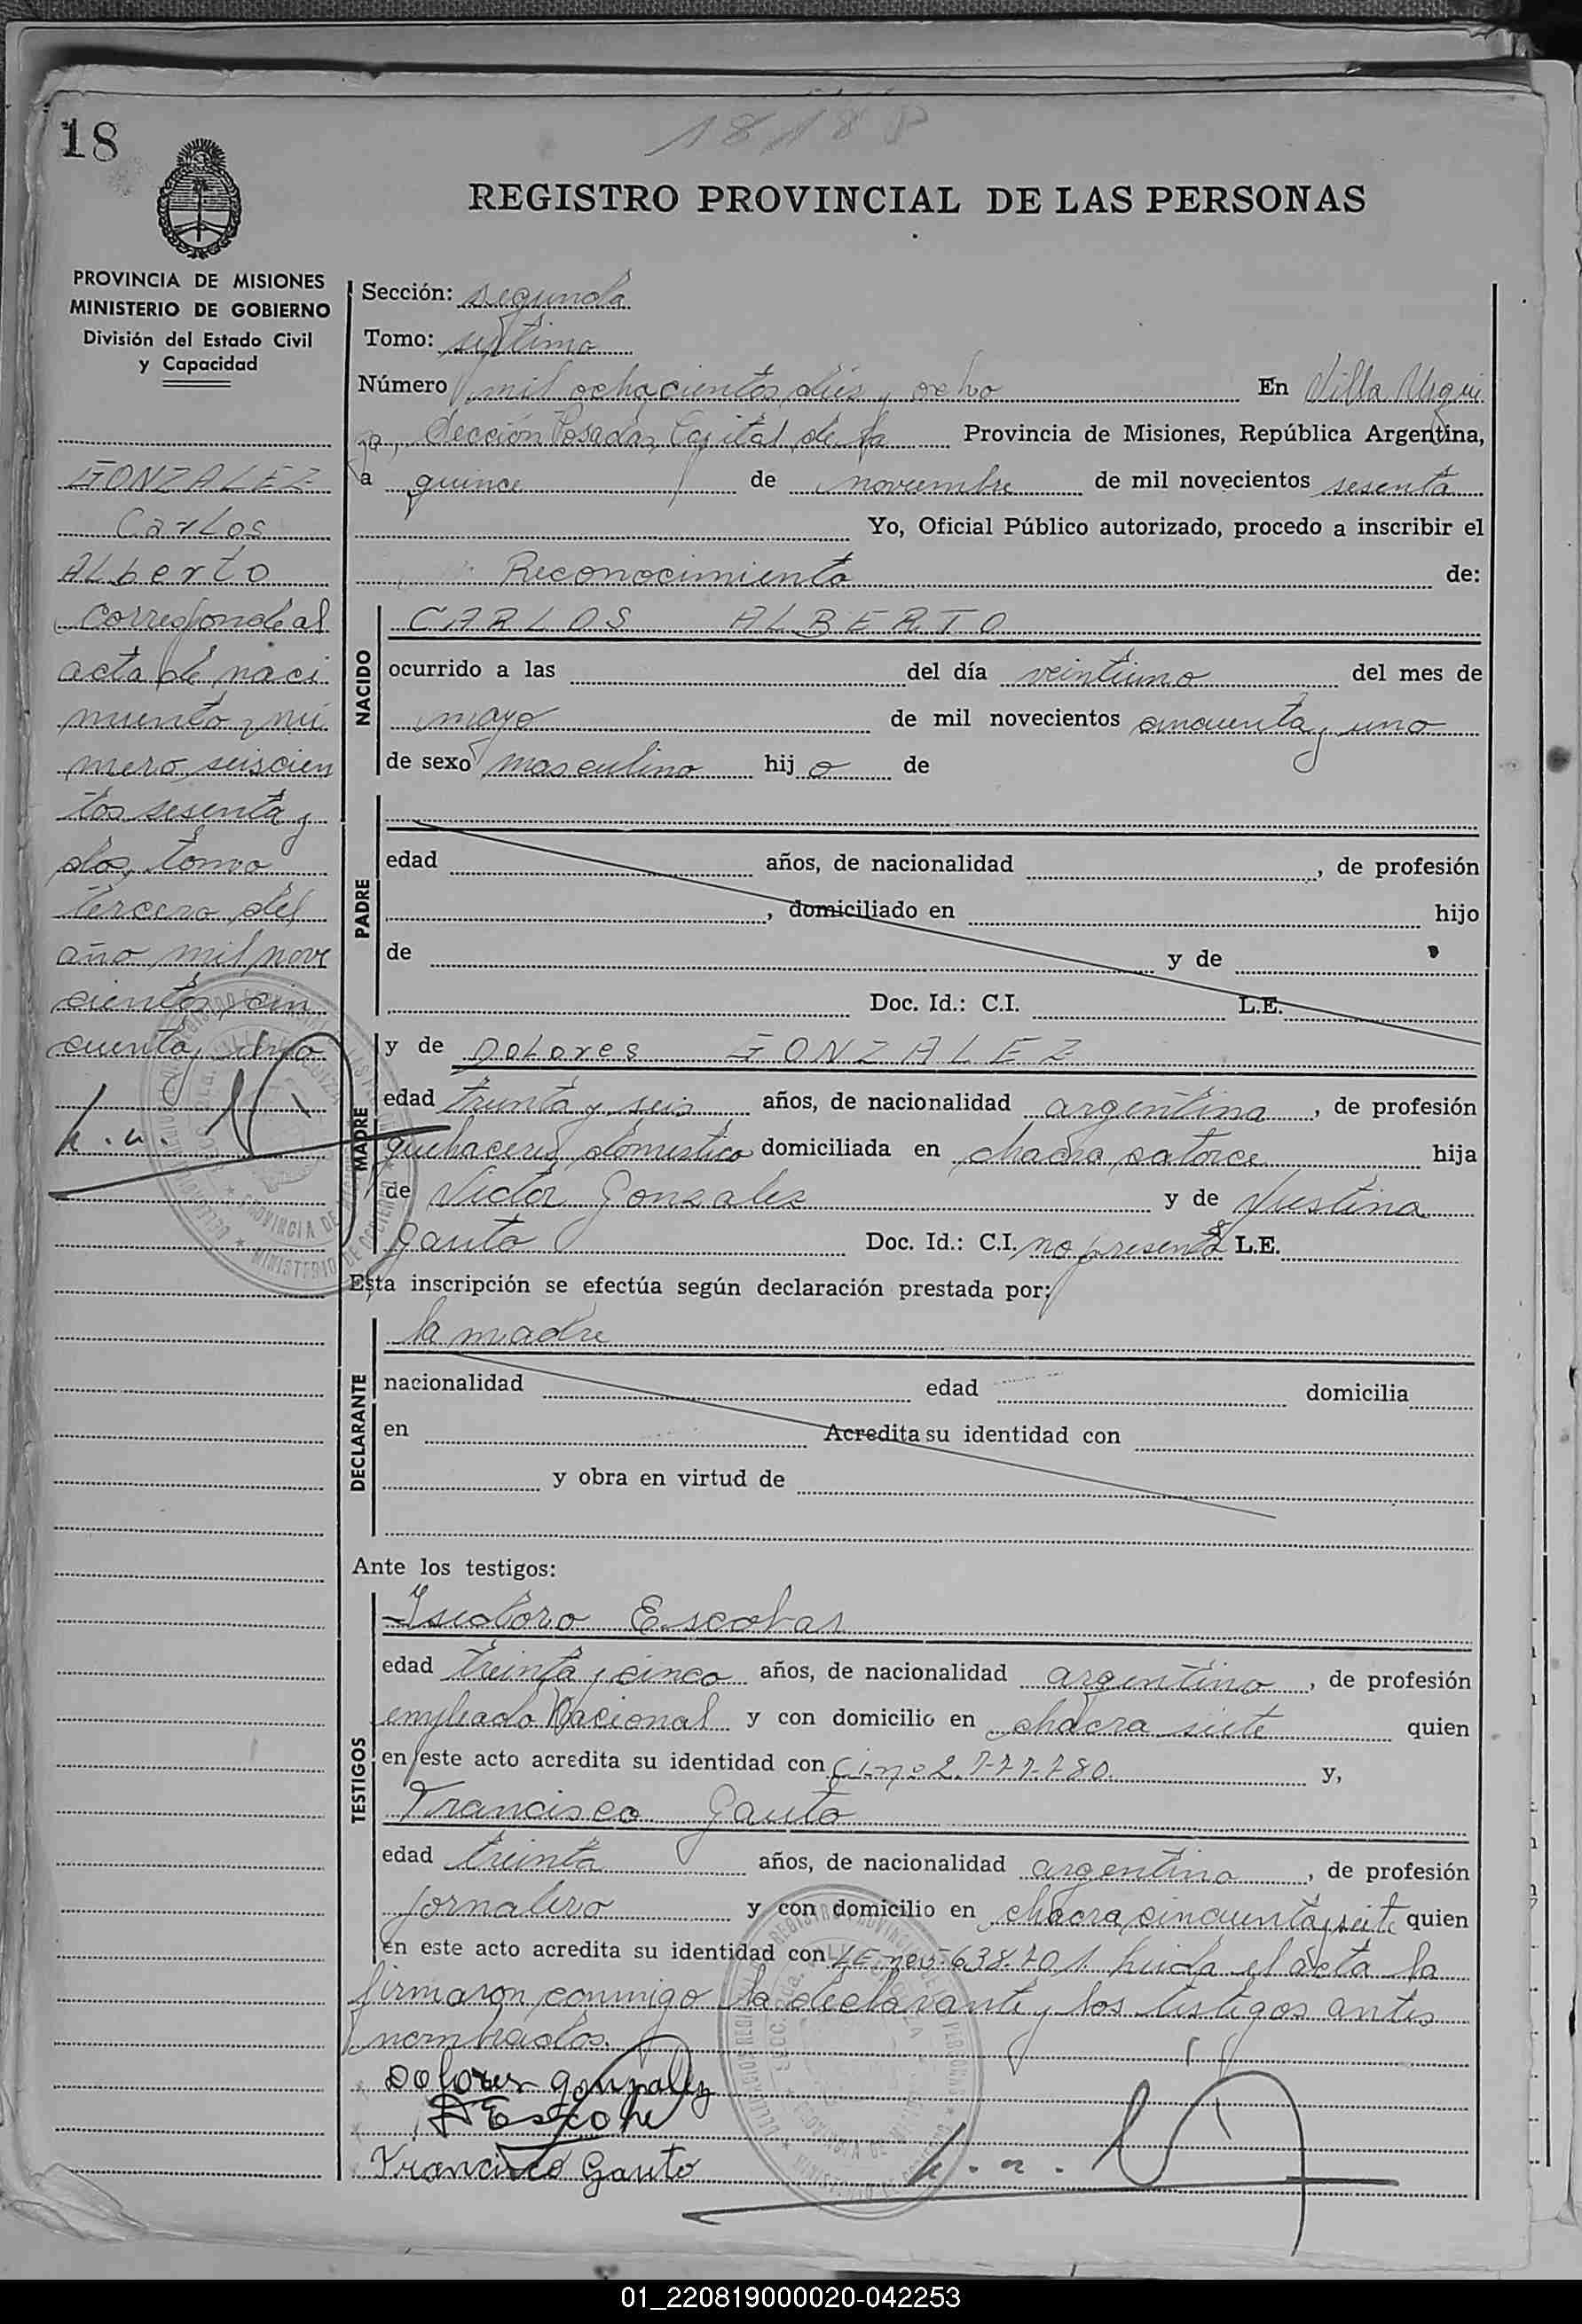 18
1818
REGISTRO PROVINCIAL DE LAS PERSONAS
PROVINCIA DE MISIONES
MINISTERIO DE GOBIERNO
División del Estado Civil
y Capacidad
GONZALEZ
Carlos
Alberto
corresponde al
acta de naci
miento, nú
mero seiscien
tos sesenta y
dos, tomo
tercero del
año mil nove
cientos cin
cuenta y uno
Sección: segunda
Tomo: séptimo
Número mil ochocientos dies y ocho En Villa Urqui
za, Sección Posadas, Capital de la Provincia de Misiones, República Argentina,
a quince de noviembre de mil novecientos sesenta
Yo, Oficial Público autorizado, procedo a inscribir el
Reconocimiento de:
NACIDO
CARLOS ALBERTO
ocurrido a las del día veintiuno del mes de
mayo de mil novecientos cincuenta y uno
de sexo masculino hij o de
PADRE
edad años, de nacionalidad , de profesión
, domiciliado en hijo
de y de
Doc. Id.: C.I. L.E.
MADRE
y de Dolores GONZALEZ
edad treinta y seis años, de nacionalidad argentina, de profesión
quehaceres domestico domiciliada en chacra catorce hija
de Victor Gonzalez y de
Gauto Doc. Id.: C.I. no presenta L.E.
Esta inscripción se efectúa según declaración prestada por:
DECLARANTE
la madre
nacionalidad edad domicilia
en Acredita su identidad con
y obra en virtud de
Ante los testigos:
TESTIGOS
Isidoro Escobar
edad treinta y cinco años, de nacionalidad argentino, de profesión
empleado Nacional y con domicilio en chacra siete quien
en este acto acredita su identidad con C.i.nº 2.777.780. y,
Francisco Gauto
edad treinta años, de nacionalidad argentino, de profesión
jornalero y con domicilio en chacra cincuenta y siete quien
en este acto acredita su identidad con L.E. nº 5.638.701. leida el acta la
firmaron conmigo la declarante y los testigos antes
nombrados.
Dolores gonzalez
Francisco Gauto
01_220819000020-042253